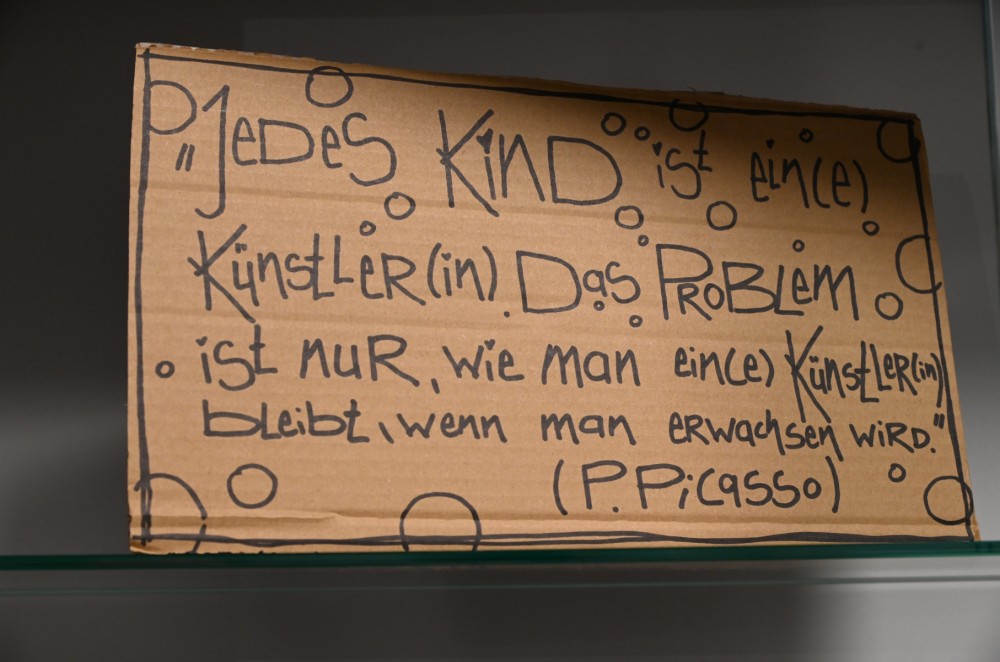 "Jedes Kind ist ein(e)
Künstler(in). Das Problem
ist nur, wie man ein(e) Künstler(in)
bleibt, wenn man erwachsen wird."
(P. Picasso)